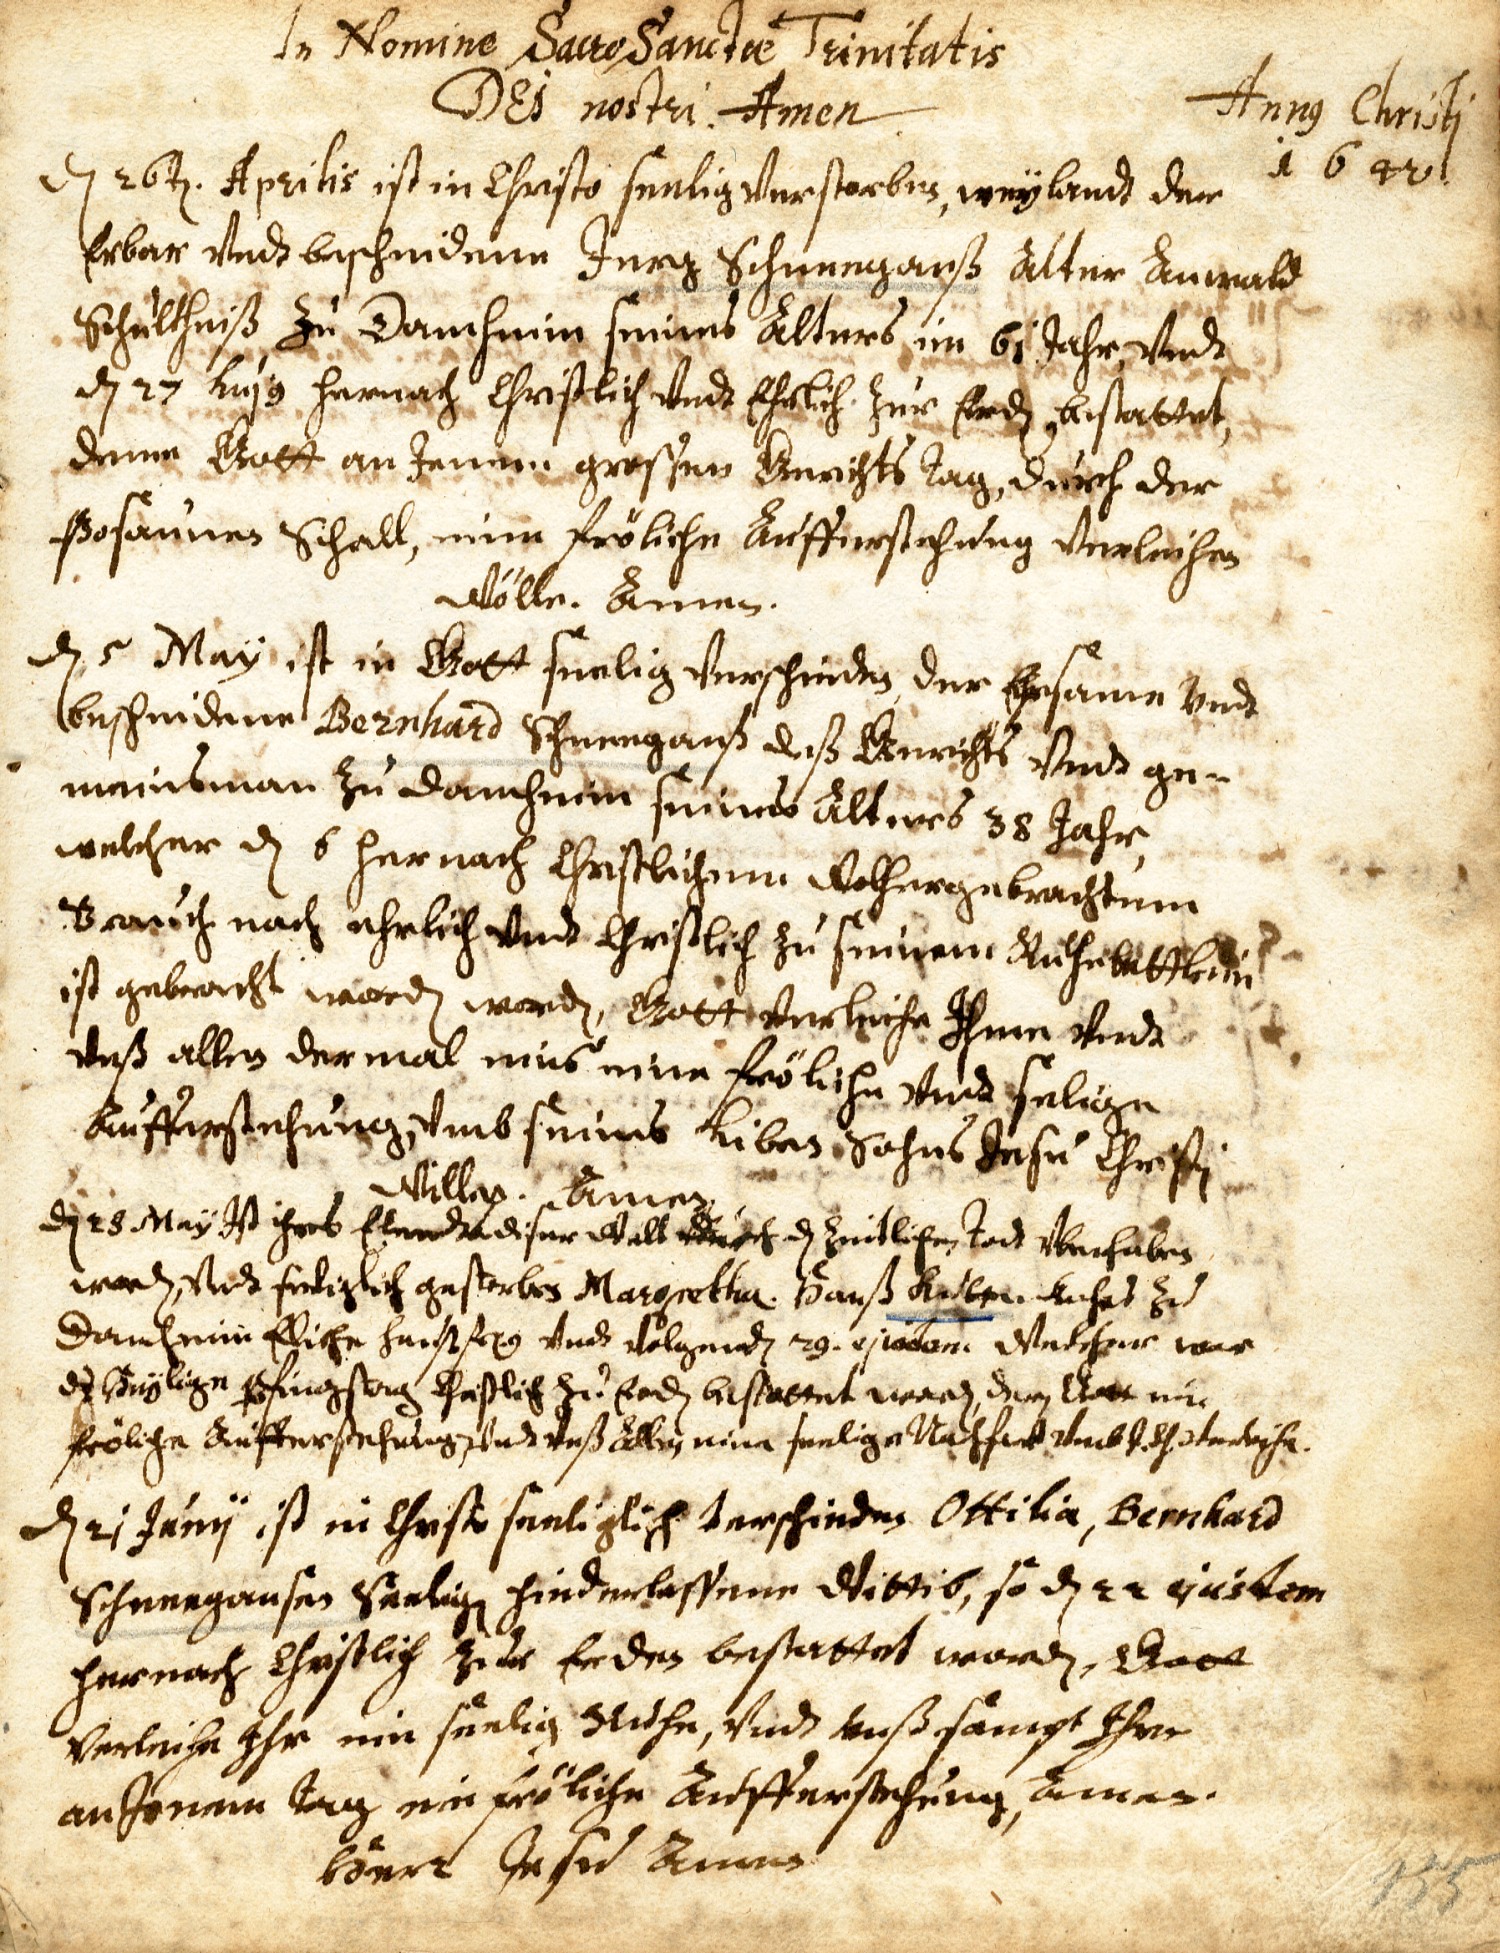 In Nomine SacroSanctæ Trinitatis
DEI nostri. Amen
Anno Christi
1642.
dē 26t. Aprilis ist in Christo seelig Verstorben, weylandt der
Erbar Vndt bescheidene Jerg Schneeganß Alter Anwald
Schultheiß Zu Dancheim seines Alters im 61 Jahr, Vndt
dē 27 hernach Christlich Vndt Ehrlich zur Erdē bestattet,
deme Gott an Jenem grossen Gerichts Tag, durch der
Posaunen Schall, eine fröliche Aufferstehung Verleihen
Wölle. Amen.
dē 5 May ist in Gott seelig Verschieden, der Ehrsame Vndt
bescheidene Bernhard Schneeganß deß Gerichts Vndt ge-
meinsman Zu Dancheim seines Alters 38 Jahr,
welcher dē 6 hernach Christlichem Wolhergebrachtem
Brauch nach ehrlich Vndt Christlich zu seinem Ruhebettlein
ist gebracht wordē wordē, Gott Verleihe Ihme Vndt
Vnß allen dermal eins eine fröliche Vndt selige
Aufferstehung, Vmb seines Liben Sohns Jesu Christj
Willen. Amen.
dē 28 May Ist ihres Elends diser Welt durch dē Zeitlichen Todt Vberhaben
wordē, Vndt seliglich gestorben Margretha. Hanß zu
Dancheim Eliche haußfrau Vndt Volgendē 29. ejusdem Welcher war
dē Heylige Pfingstag Christlich Zu Erdē bestattet wordē, derē Gott ein
fröliche Aufferstehung, Vndt Vnß Allen eine seelige Nachfart Verleyhe.
dē 21 Junij ist in Christo seeliglich Verschieden Ottilia, Bernhard
Schneegansen Seelig hinderlassene Wittib, so dē 22 ejusdem
hernach Christlich Zur Erden bestattet wordē, Gott
Verleihe Ihr ein seelig Ruhe, Vndt Vnß sampt Ihr
an Jenem Tag ein fröliche Aufferstehung, Amen.
Herr Jesu Amen
155